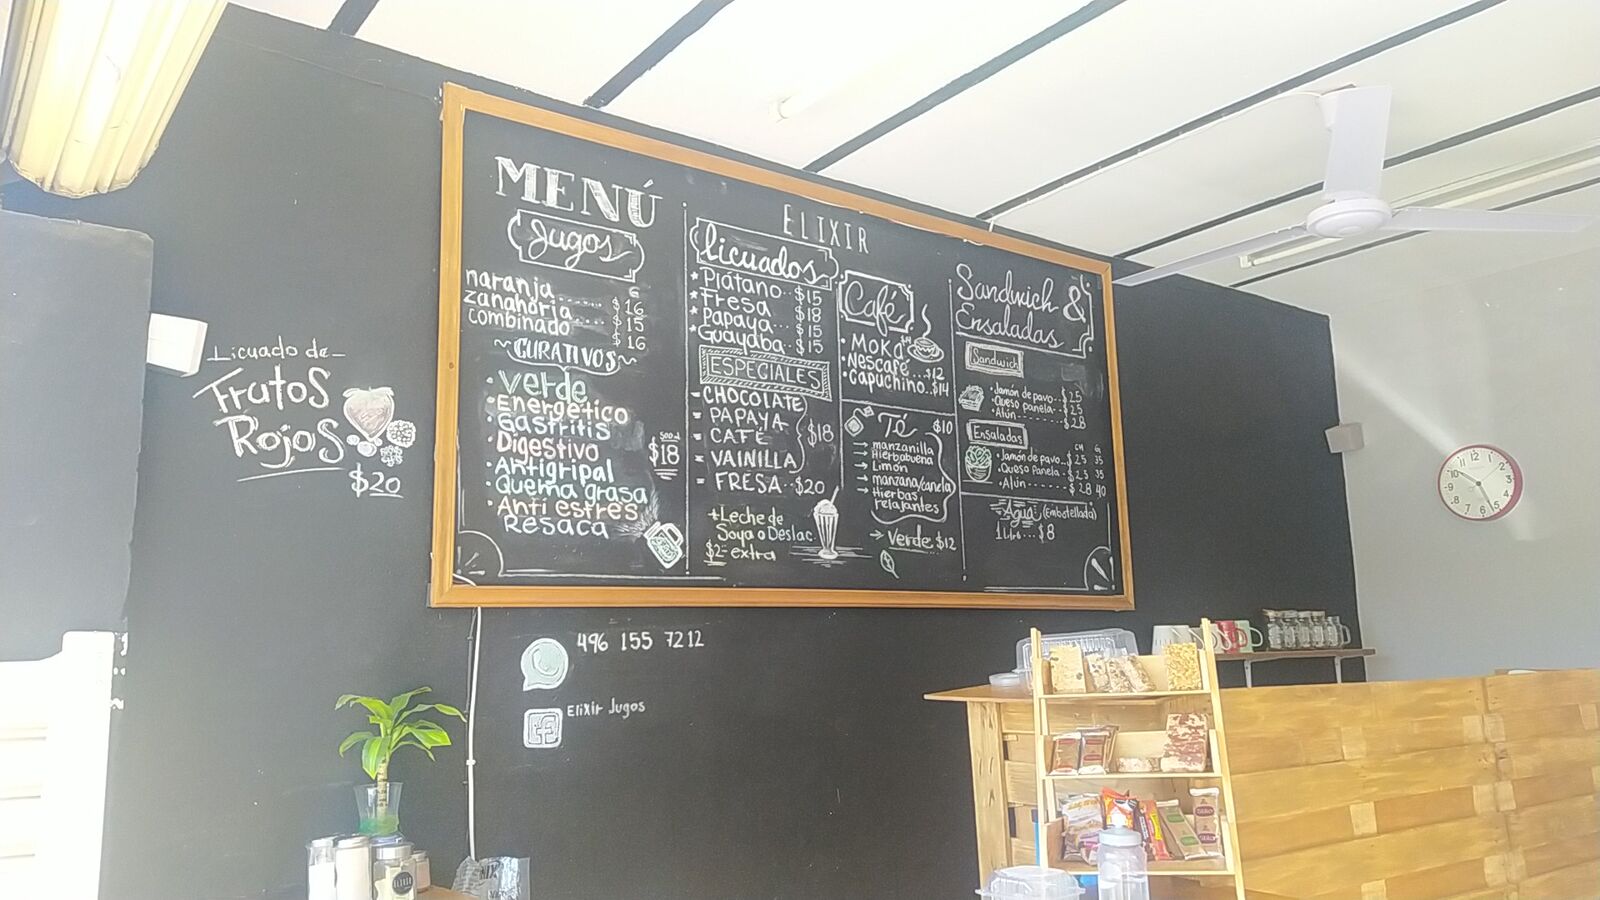 MENÚ
Jugos
G
naranja ------ $16
zanahoria ------ $15
combinado ------ $16
~CURATIVOS~
• Verde
• Energético
• Gastritis
• Digestivo
• Antigripal
• Quema grasa
• Anti estrés
Resaca
$18
ELIXIR
licuados
* Plátano -- $15
* Fresa $18
* Papaya --- $15
* Guayaba -- $15
ESPECIALES
- CHOCOLATE
- PAPAYA
- CAFÉ
- VAINILLA
$18
- FRESA -- $20
+ Leche de
Soya o Deslac.
$2- extra
Café
• Moka
• Nescafé ... $12
• Capuchino .. $14
Té $10
→ manzanilla
→ Hierbabuena
→ Limón
→ manzana/canela
→ Hierbas
relajantes
→ Verde $12
Sandwich &
Ensaladas
Sandwich
• Jamón de pavo -- $25
• Queso panela -- $25
• Atún ------ $28
Ensaladas
CH G
• Jamón de pavo -- $25 35
• Queso panela -- $25 35
• Atún ------ $28 40
Agua (Embotellada)
1 Litro ... $8
Licuado de
Frutos
Rojos
$20
496 155 7212
Elixir Jugos